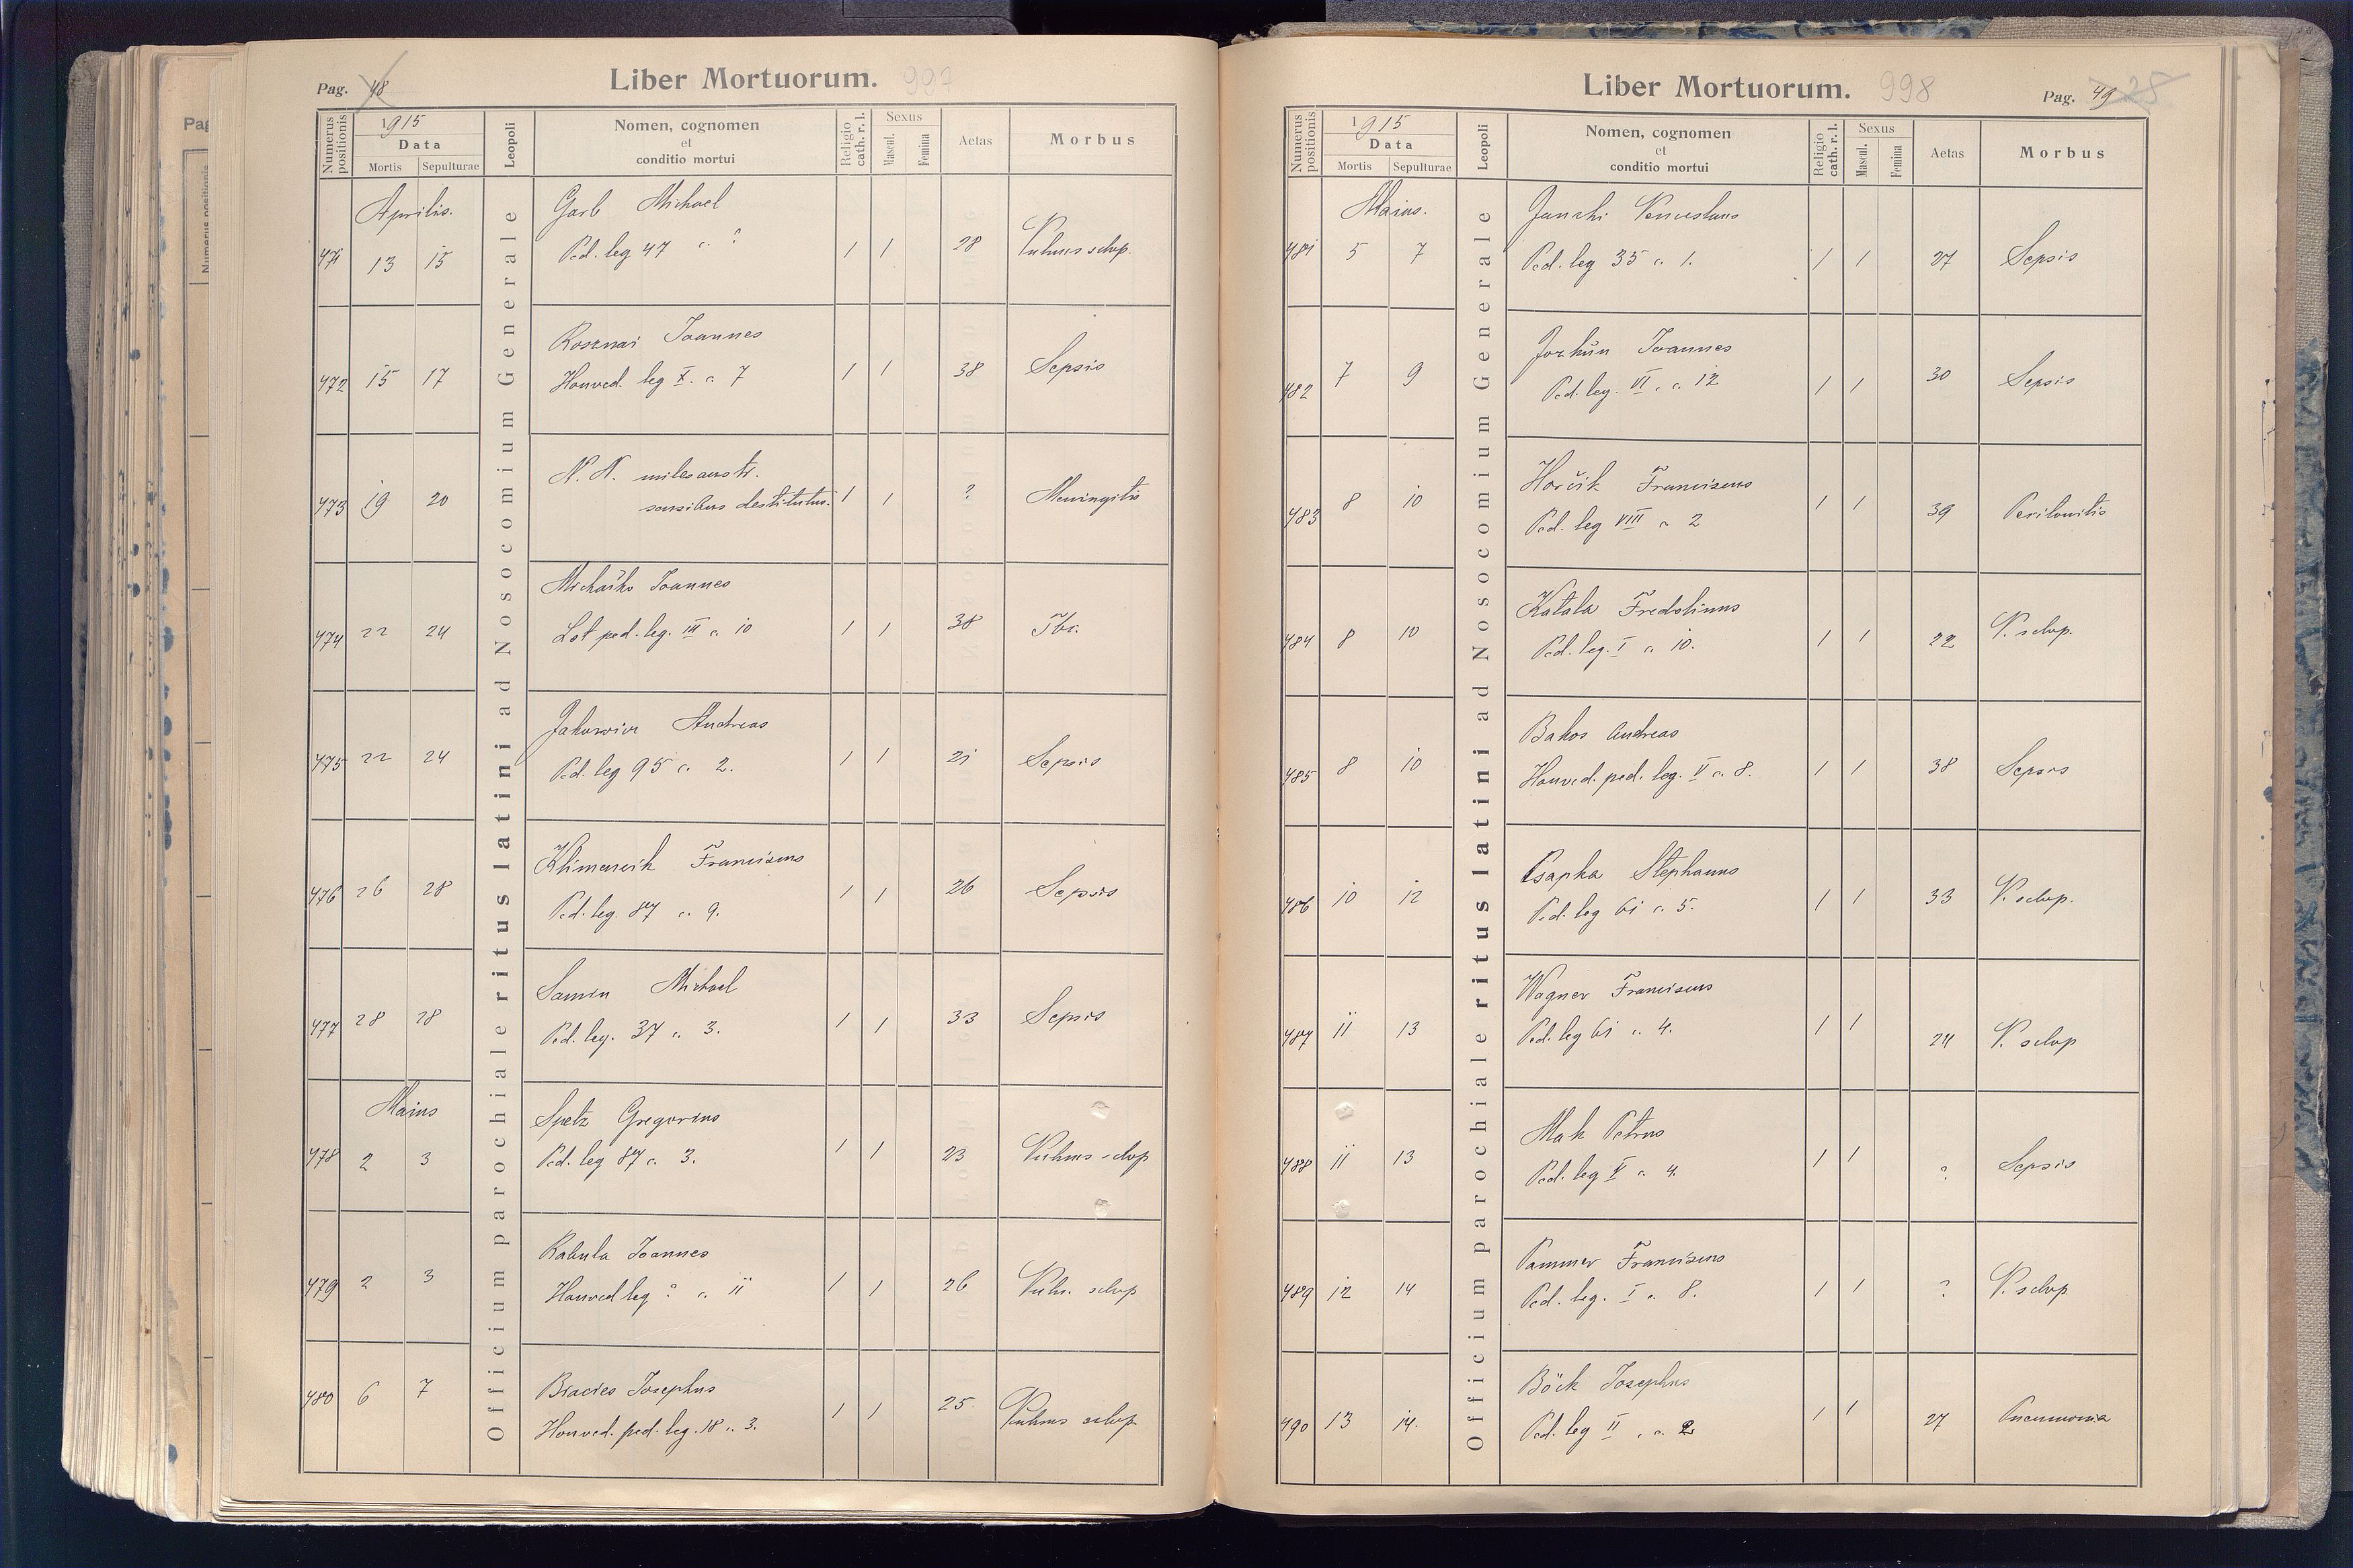 Pag. 48
Liber Mortuorum. 997
Numerus positionis
1915
Data
Mortis
Sepulturae
Leopoli
Nomen, cognomen
et
conditio mortui
Religio cath. r. l.
Sexus
Mascul.
Femina
Aetas
Morbus
Officium parochiale ritus latini ad Nosocomium Generale
Aprilis.
Garb Michael
471 13 15 Ped. leg 47 c. ? 1 1 28 Vulnus sclop.
Rosznai Joannes
472 15 17 Honved. leg X. c. 7 1 1 38 Sepsis
N. N. miles austr.
473 19 20 sensibus destitutus. 1 1 ? Meningitis
Joannes
474 22 24 ped. leg. III c. 10 1 1 38 Tbc.
Andreas
475 22 24 Ped. leg 95 c. 2. 1 1 21 Sepsis
Franciscus
476 26 28 Ped. leg. 87 c. 9. 1 1 26 Sepsis
Michael
477 28 28 Ped. leg. 37 c. 3. 1 1 33 Sepsis
Maius
Spetz Gregorius
478 2 3 Ped. leg 87 c. 3. 1 1 23 Vulnus sclop
Rabula Joannes
479 2 3 Honved leg ? c. 11 1 1 26 Vuln. sclop
Josephus
480 6 7 Honved. ped. leg. 18 c. 3. 1 1 25. Vulnus sclop
Liber Mortuorum. 998
Pag. 49 25
Numerus positionis
1915
Data
Mortis
Sepulturae
Leopoli
Nomen, cognomen
et
conditio mortui
Religio cath. r. l.
Sexus
Mascul.
Femina
Aetas
Morbus
Officium parochiale ritus latini ad Nosocomium Generale
Maius.
Venceslaus
481 5 7 Ped. leg 35 c. 1. 1 1 27 Sepsis
Joannes
482 7 9 Ped. leg. VI. c. 12 1 1 30 Sepsis
Horčik Franciscus
483 8 10 Ped. leg VIII c. 2 1 1 39 Peritonitis
Katala Fredolinus
484 8 10 Ped. leg. I c. 10. 1 1 22 V. sclop.
Bakos Andreas
485 8 10 Honved. ped. leg. V c. 8. 1 1 38 Sepsis
Csapka Stephanus
486 10 12 Ped. leg 61 c. 5. 1 1 33 V. sclop.
Wagner Franciscus
487 11 13 Ped. leg 61 c. 4. 1 1 24 V. sclop
Mak Petrus
488 11 13 Ped. leg V c. 4. 1 1 ? Sepsis
Pammer Franciscus
489 12 14 Ped. leg. I c. 8. 1 1 ? V. sclop
Böck Josephus
490 13 14. Ped. leg II. c. 2 1 1 27 Pneumonia